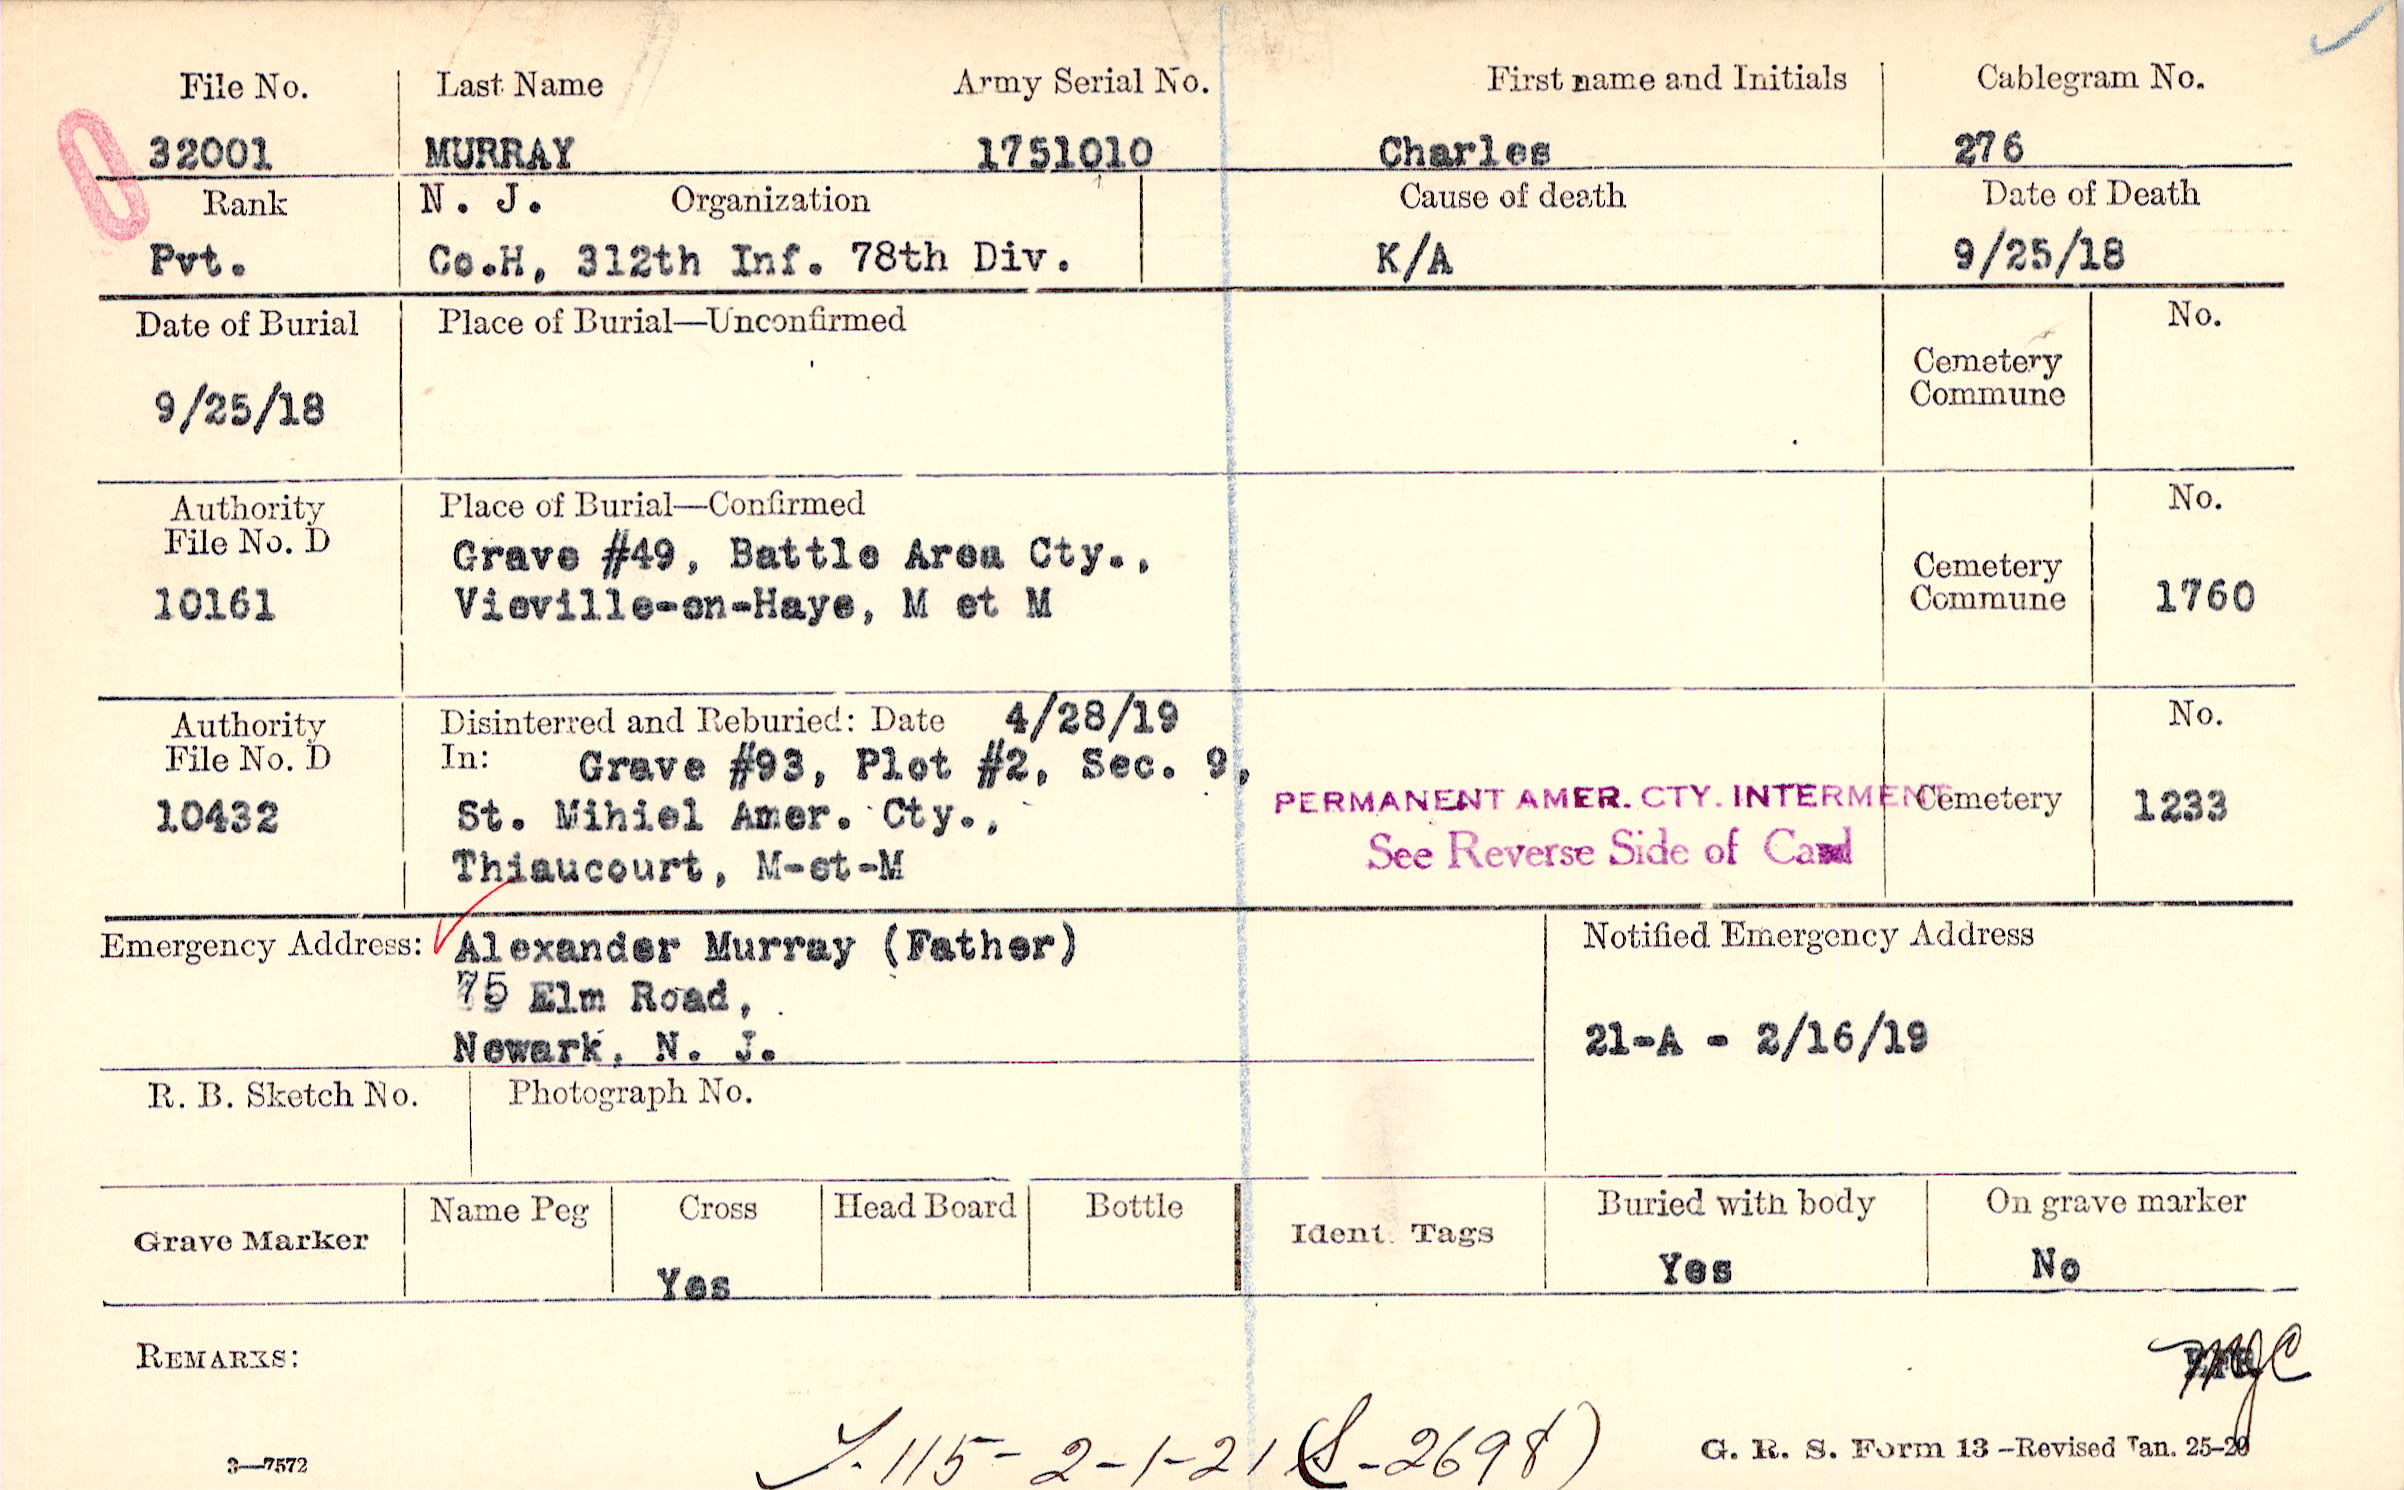 File No. Last Name Army Serial No. First name and Initials Cablegram No.
32001 MURRAY 1751010 Charles 276
Rank N. J. Organization Cause of death Date of Death
Pvt. Co.H, 312th Inf. 78th Div. K/A 9/25/18
Date of Burial Place of Burial—Unconfirmed No.
Cemetery
Commune
9/25/18
Authority Place of Burial—Confirmed No.
File No. D
Grave #49, Battle Area Cty.,
Cemetery
10161 Vieville-en-Haye, M et M Commune 1760
Authority Disinterred and Reburied: Date 4/28/19 No.
File No. D In: Grave #93, Plot #2, Sec. 9,
PERMANENT AMER. CTY. INTERMENT
10432 St. Mihiel Amer. Cty., Cemetery 1233
See Reverse Side of Card
Thiaucourt, M-et-M
Emergency Address: Alexander Murray (Father) Notified Emergency Address
75 Elm Road,
Newark, N. J. 21-A - 2/16/19
R. B. Sketch No. Photograph No.
Grave Marker Name Peg Cross Head Board Bottle Ident. Tags Buried with body On grave marker
Yes Yes No
REMARKS:
MJC
J. 115-2-1-21 (S-2698)
3—7572 G. R. S. Form 13—Revised Jan. 25-20